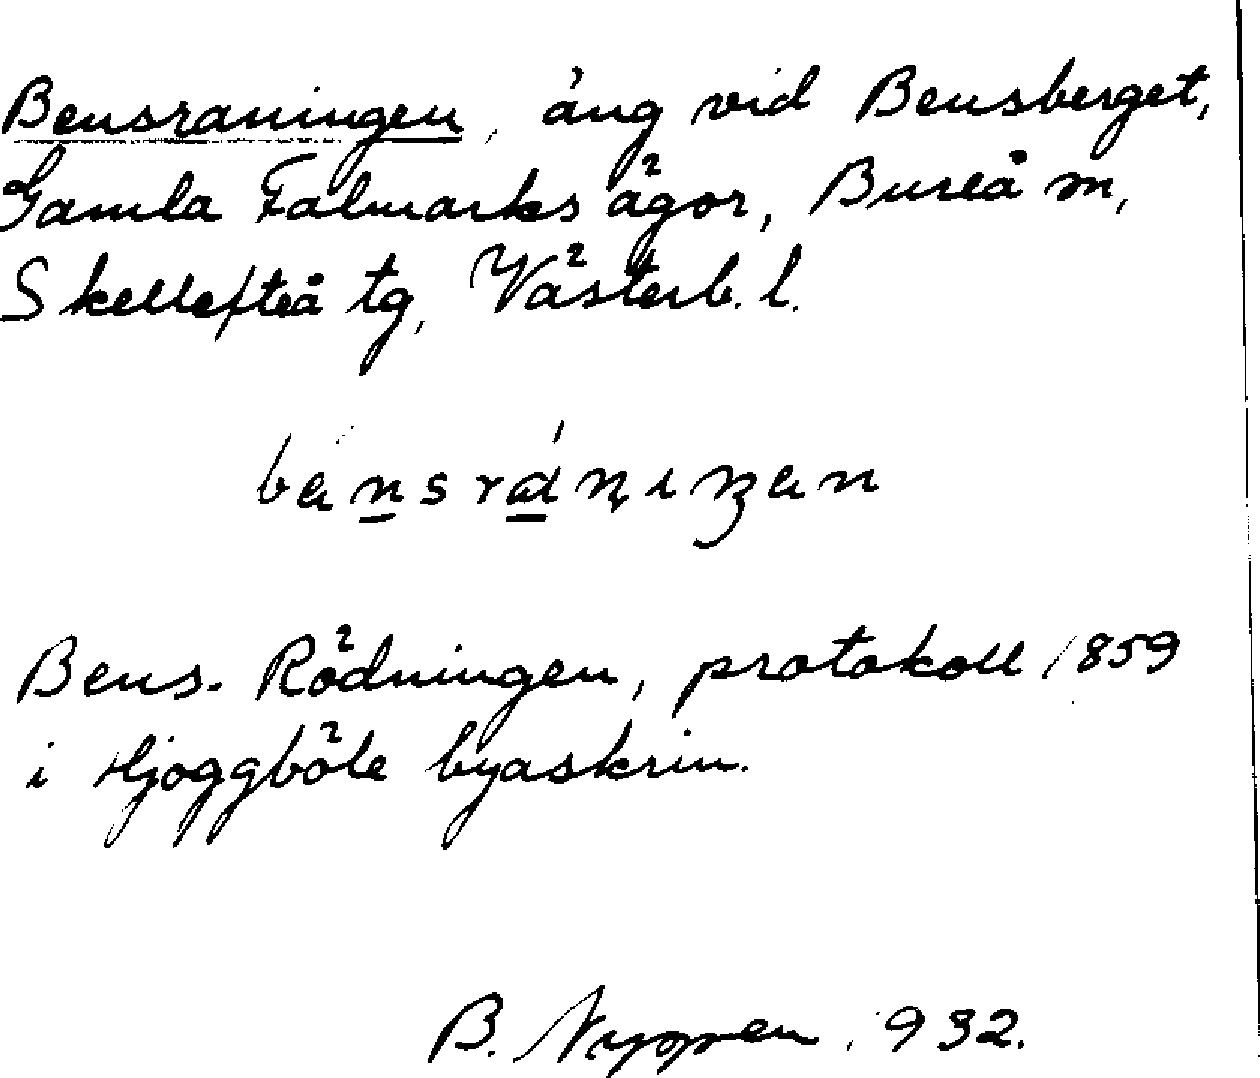 Bensraningen, äng vid Bensberget,
Gamla Falmarks ägor, Bureå m,
Skellefteå tg, Västerb. l.
Bens. Rödningen, protokoll 1859
i Hjoggböle byaskrin.
B. Nyppen, 1932.